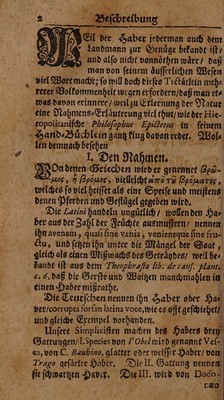 2 Beschreibung
WEil der Haber jederman auch dem
Landmann zur Genüge bekandt ist/
und also nicht vonnöthen wäre/ daß
man von seinem äusserlichen Wesen
viel Wort mache; so will doch dieses Tractätlein meh-
rerer Vollkommenheit wegen erfordern/daß man et-
was davon erinnere/ weil zu Erlernung der Natur
eine Nahmens-Erläuterung viel thut; wie der Hie-
ropolitanische Philosophus Epictetus in seinem
Hand-Büchlein gantz klug davon redet. Wol-
len demnach besehen
I. Den Nahmen.
VOn denen Griechen wird er genennet βρῶ-
μος, ἢ βρόμος, vielleicht ἀπὸ τῶ βρώματος,
welches so viel heisset als eine Speise und meistens
denen Pferden und Geflügel gegeben wird.
Die Latini handeln ungütlich/ wollen den Ha-
ber aus der Zahl der Früchte ausmustern/ nennen
ihn avenam, quasi sine vena, veniensque sine fru-
ctu, und setzen ihn unter die Mängel der Saat,
gleich als einen Mißwachs des Geträydes/ weil be-
kandt ist aus dem Theophrasto lib. de caus. plant.
c. 6. daß die Gerste und Waitzen manchmahlen in
einen Haber mißrathe.
Die Teutschen nennen ihn Haber oder Ha-
ver/corrupta forsan latina voce, wie es offt geschiehet/
und gleiche Exempel vorhanden.
Unsere Simplicisten machen des Habers drey
Gattungen/ I. Species von l'Obel wird genannt Ves-
co, von C. Bauhino, glatter oder weisser Haber/ von
Trago gefärter Haber. Die II. Gattung nennen
sie schwartzen Haver. Die III. wird von Dodo-
næo